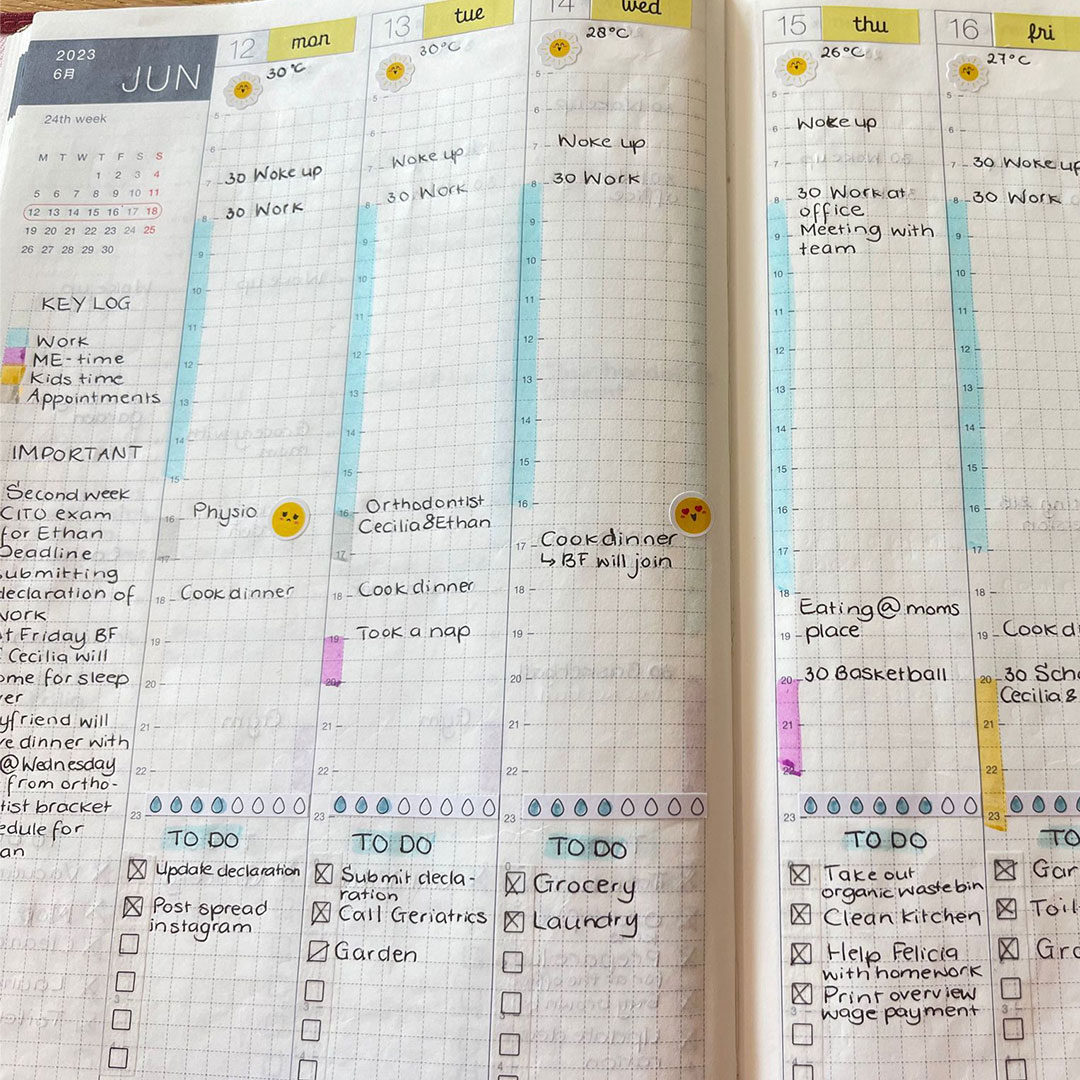 2023
6月
JUN
24th week
M T W T F S S
1 2 3 4
5 6 7 8 9 10 11
12 13 14 15 16 17 18
19 20 21 22 23 24 25
26 27 28 29 30
KEY LOG
Work
ME-time
Kids time
Appointments
IMPORTANT
Second week
CITO exam
for Ethan
Deadline
submitting
declaration of
work
Friday BF
Cecilia will
come for sleep
will
dinner with
@Wednesday
from ortho-
bracket
for
12 mon
30°C
5
6
7 30 Woke up
8 30 Work
9
10
11
12
13
14
15
16 Physio
17
18 Cook dinner
19
20
21
22
23
TO DO
Update declaration
Post spread
instagram
13 tue
30°C
5
6
7 Woke up
8 30 Work
9
10
11
12
13
14
15
16 Orthodontist
Cecilia & Ethan
17
18 Cook dinner
19 Took a nap
20
21
22
23
TO DO
Submit decla-
ration
Call Geriatrics
Garden
14 wed
28°C
5
6
7 Woke up
8 30 Work
9
10
11
12
13
14
15
16
17 Cook dinner
↳ BF will join
18
19
20
21
22
23
TO DO
Grocery
Laundry
15 thu
26°C
5
6 Woke up
7
8 30 Work at
office
9 Meeting with
team
10
11
12
13
14
15
16
17
18 Eating @ moms
19 place
20 30 Basketball
21
22
23
TO DO
Take out
organic wastebin
Clean kitchen
Help Felicia
with homework
Print overview
wage payment
16 fri
27°C
5
6
7 30 Woke up
8 30 Work
9
10
11
12
13
14
15
16
17
18
19 Cook
20 30
Cecilia &
21
22
23
TO